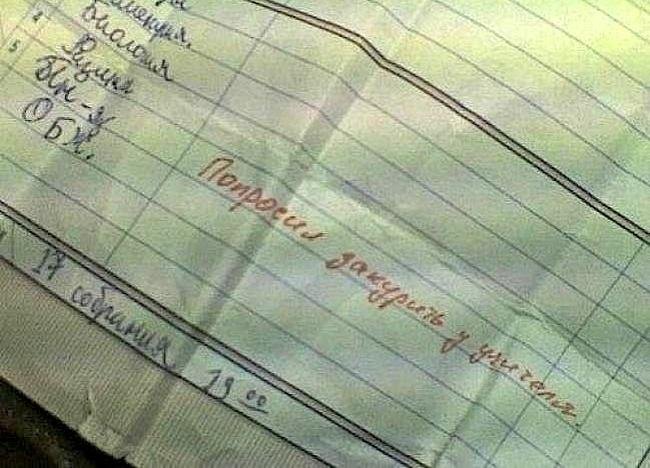 4 Биология
Физика
5 Ин-я
ОБЖ.
Попросил закурить у учителя.
17 собрания 19 00